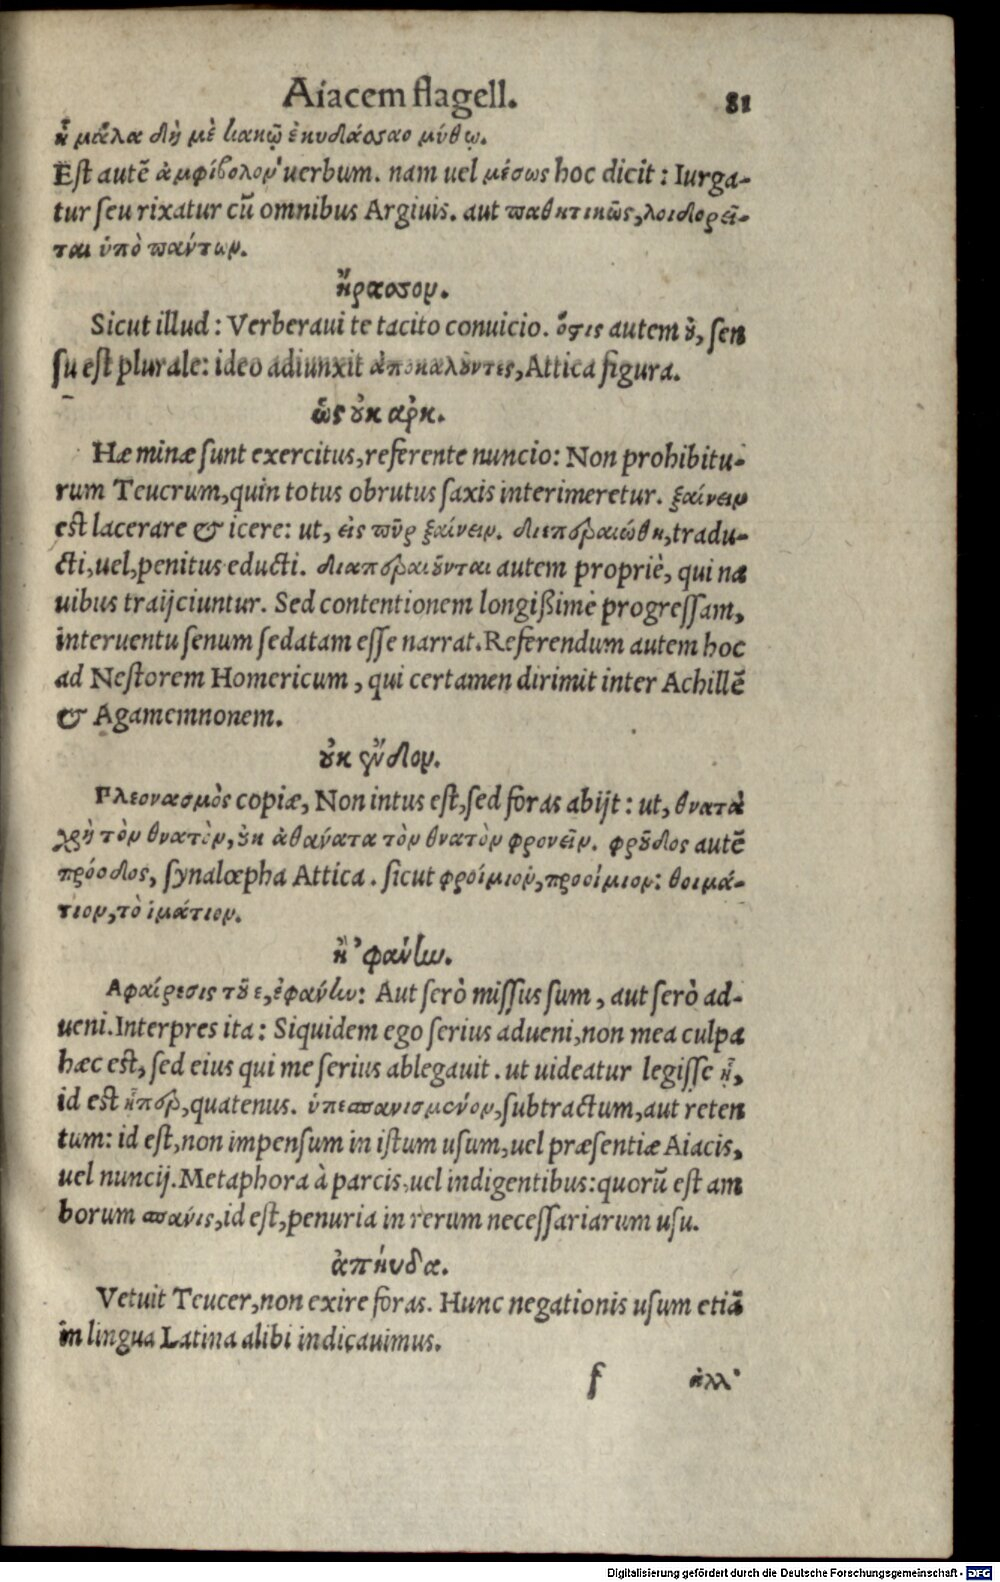 Aiacem flagell. 81
ἦ μάλα δή με κακῷ ἐκυδάσσαο μύθῳ.
Est autē ἀμφίβολον uerbum. nam uel μέσως hoc dicit: Iurga-
tur seu rixatur cū omnibus Argiuis. aut παθητικῶς, λοιδορεῖ-
ται ὑπὸ πάντων.
ἤρασσον.
Sicut illud: Verberaui te tacito conuicio. ὅςτις autem ȣ̓, sen
su est plurale: ideo adiunxit ἀποκαλοῦντες, Attica figura.
ὡς οὐκ ἀρκ.
Hæ minæ sunt exercitus, referente nuncio: Non prohibitu-
rum Teucrum, quin totus obrutus saxis interimeretur. ξαίνειν
est lacerare & icere: ut, εἰς πῦρ ξαίνειν. διεπεραιώθη, tradu-
cti, uel, penitus educti. διαπεραιοῦνται autem propriè, qui na
uibus traijciuntur. Sed contentionem longißimè progressam,
interuentu senum sedatam esse narrat. Referendum autem hoc
ad Nestorem Homericum, qui certamen dirimit inter Achillē
& Agamemnonem.
οὐκ ἔνδον.
Πλεονασμὸς copiæ, Non intus est, sed foras abijt: ut, θνατὰ
χρὴ τὸν θνατὸν, οὐκ ἀθανατα τὸν θνατὸν φρονεῖν. φροῦδος autē
πρόοδος, synalœpha Attica. sicut φροίμιον, προοίμιον: θοιμά-
τιον, τὸ ἱμάτιον.
ἢ ’φάνην.
Αφαίρεσις τοῦ ε, ἐφάνην: Aut serò missus sum, aut serò ad-
ueni. Interpres ita: Siquidem ego serius adueni, non mea culpa
hæc est, sed eius qui me serius ablegauit. ut uideatur legisse ᾗ,
id est ᾗπερ, quatenus. ὑπεσπανισμένον, subtractum, aut reten
tum: id est, non impensum in istum usum, uel præsentiæ Aiacis,
uel nuncij. Metaphora à parcis, uel indigentibus: quorū est am
borum σπάνις, id est, penuria in rerum necessariarum usu.
ἀπηύδα.
Vetuit Teucer, non exire foras. Hunc negationis usum etiā
in lingua Latina alibi indicauimus.
f ἀλλ’
Digitalisierung gefördert durch die Deutsche Forschungsgemeinschaft - DFG